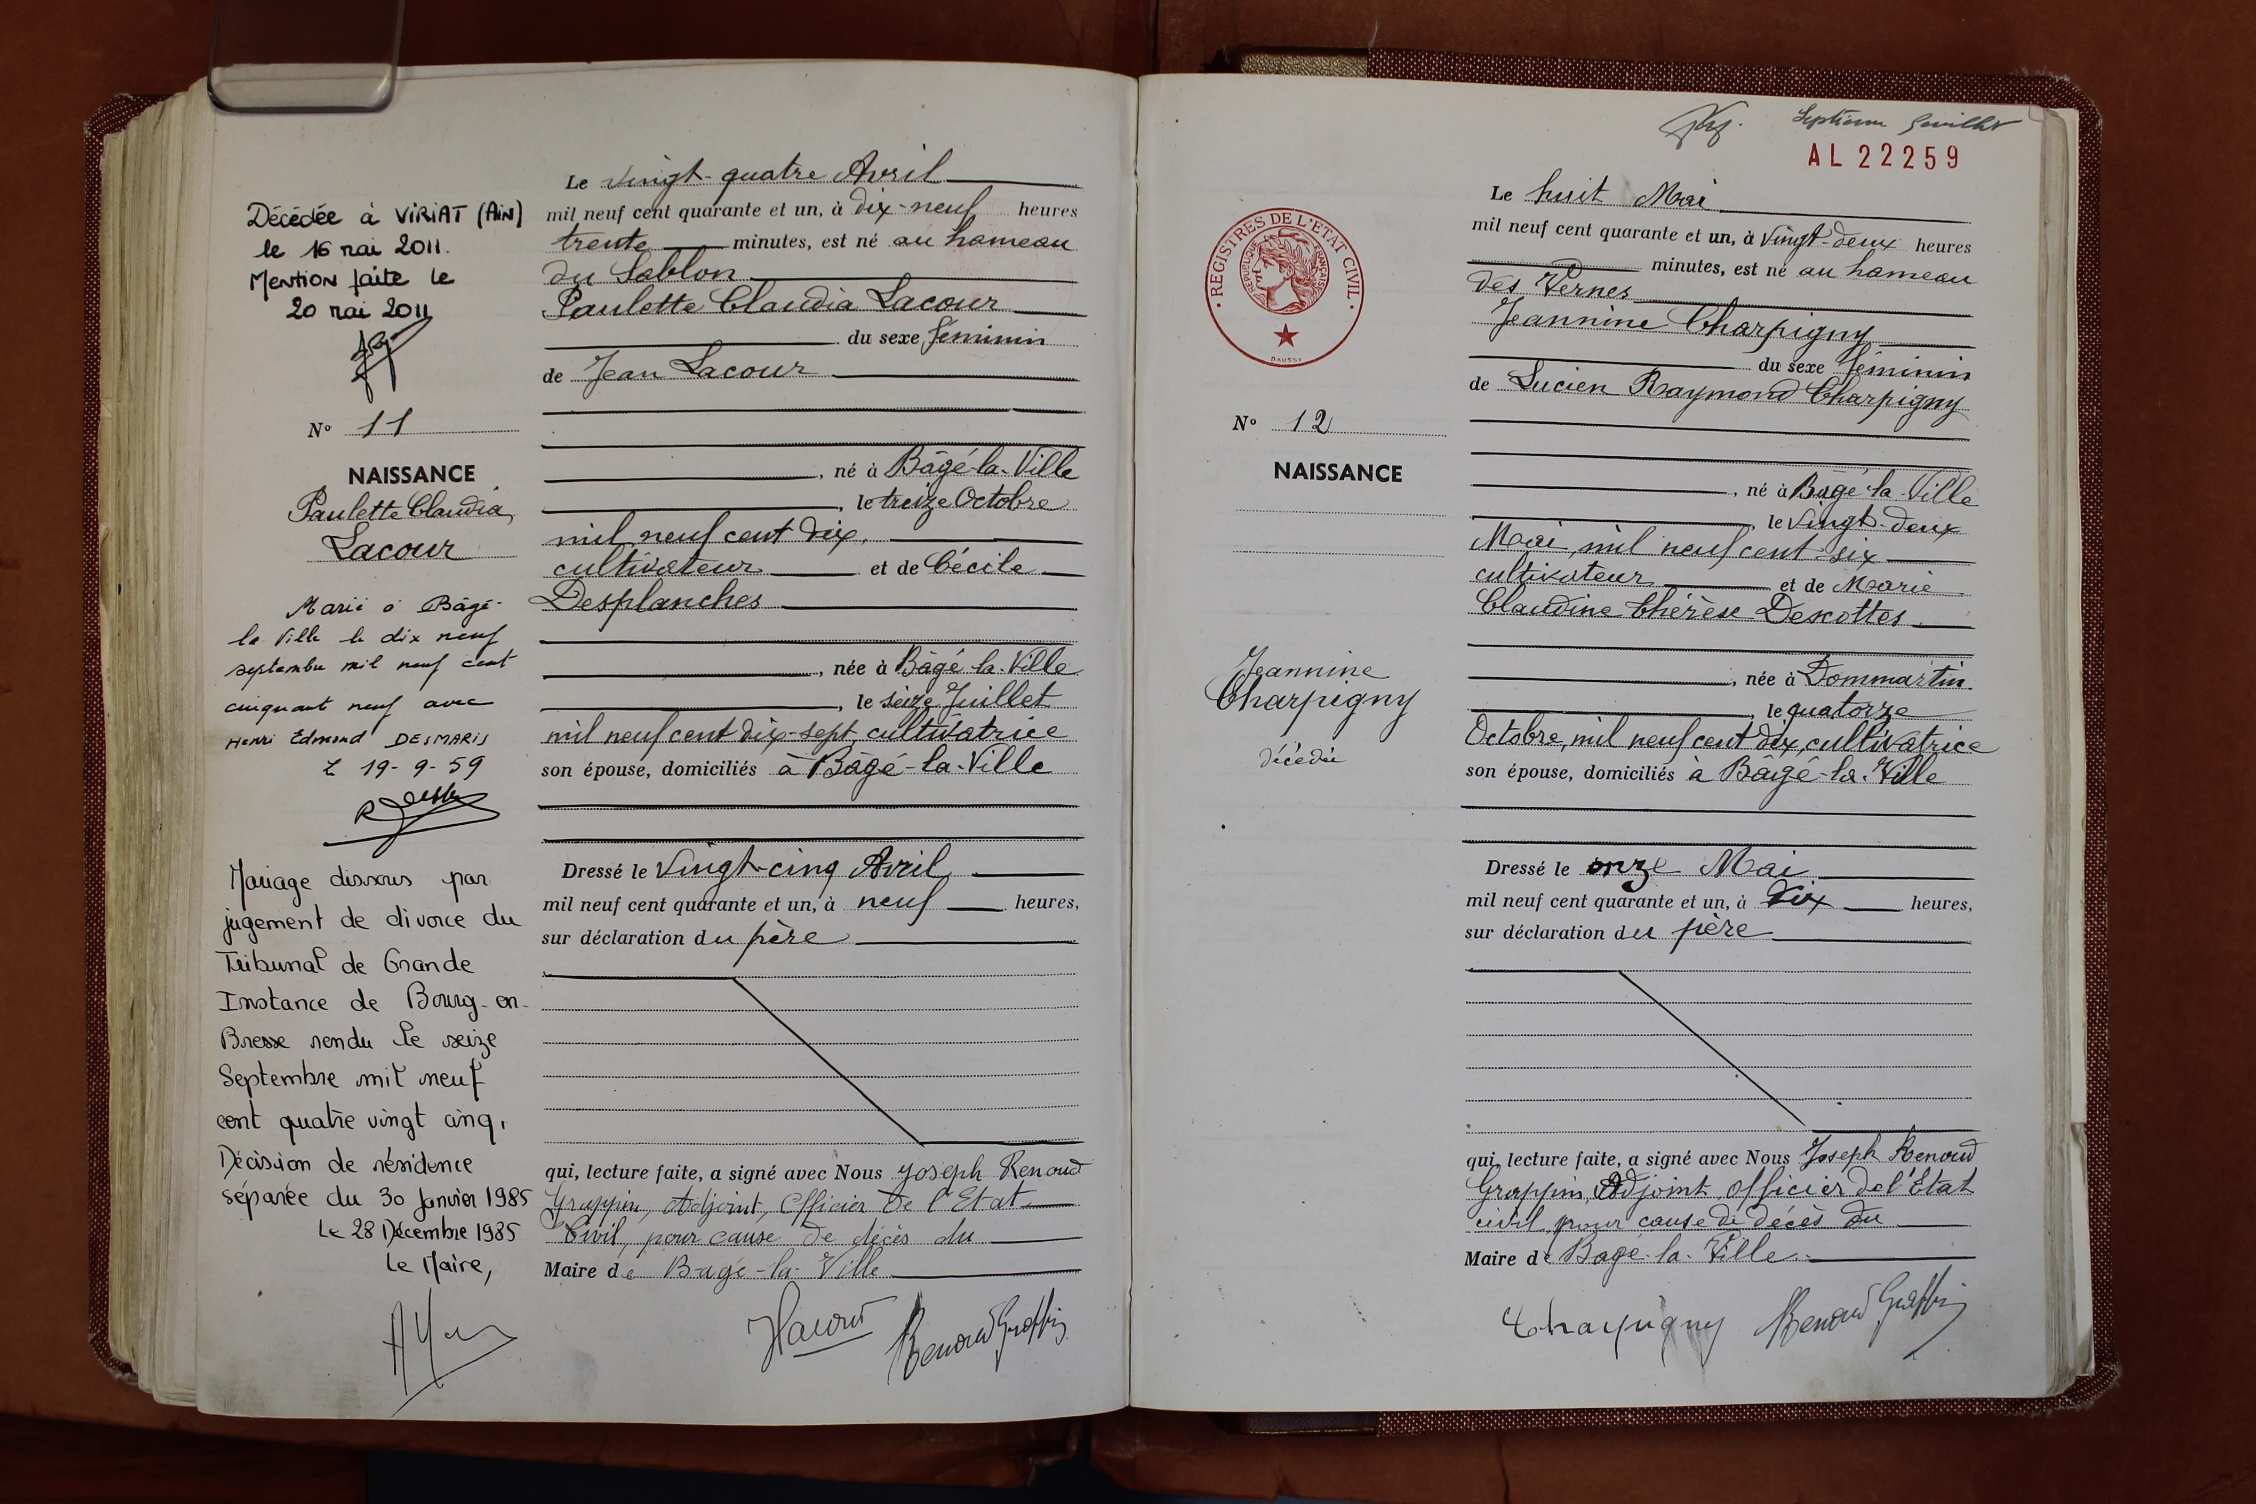 Décédée à VIRIAT (AIN)
le 16 mai 2011.
Mention faite le
20 mai 2011
N° 11
NAISSANCE
Paulette Claudia
Lacour
Marié à Bâgé-
la Ville le dix neuf
septembre mil neuf cent
cinquant neuf avec
Henri Edmond DESMARIS
19-9-59
Mariage dissous par
jugement de divorce du
Tribunal de Grande
Instance de Bourg-en-
Bresse rendu le seize
Septembre mil neuf
cent quatre vingt cinq,
Décision de résidence
séparée du 30 Janvier 1985
Le 28 Décembre 1985
Le Maire,
Le vingt-quatre Avril
mil neuf cent quarante et un, à dix-neuf heures
trente minutes, est né au hameau
du Sablon
Paulette Claudia Lacour
du sexe féminin
de Jean Lacour
, né à Bâgé-la-Ville
, le treize Octobre
mil neuf cent dix,
cultivateur et de Cécile
Desplanches
, née à Bâgé-la-Ville
, le seize Juillet
mil neuf cent dix-sept, cultivatrice
son épouse, domiciliés à Bâgé-la-Ville
Dressé le vingt-cinq Avril
mil neuf cent quarante et un, à neuf heures,
sur déclaration du père
qui, lecture faite, a signé avec Nous Joseph Renoud
Grappin, Adjoint, Officier de l'Etat
Civil, pour cause de décès du
Maire de Bagé-la-Ville
Lacour RenoudGrappin
AL 22259
REGISTRES DE L'ETAT CIVIL
REPUBLIQUE FRANÇAISE
DAUSSY
N° 12
NAISSANCE
Jeannine
Charpigny
décédée
Le huit Mai
mil neuf cent quarante et un, à vingt-deux heures
minutes, est né au hameau
des Vernes
Jeannine Charpigny
du sexe féminin
de Lucien Raymond Charpigny
, né à Bâgé-la-Ville
, le vingt-deux
Mai, mil neuf cent six
cultivateur et de Marie
Claudine Thérèse Descottes
, née à Dommartin
, le quatorze
Octobre, mil neuf cent dix, cultivatrice
son épouse, domiciliés à Bâgé-la-Ville
Dressé le onze Mai
mil neuf cent quarante et un, à dix heures,
sur déclaration du père
qui, lecture faite, a signé avec Nous Joseph Renoud
Grappin, Adjoint, officier de l'Etat
civil, pour cause de décès du
Maire de Bagé-la-Ville
Charpigny RenoudGrappin